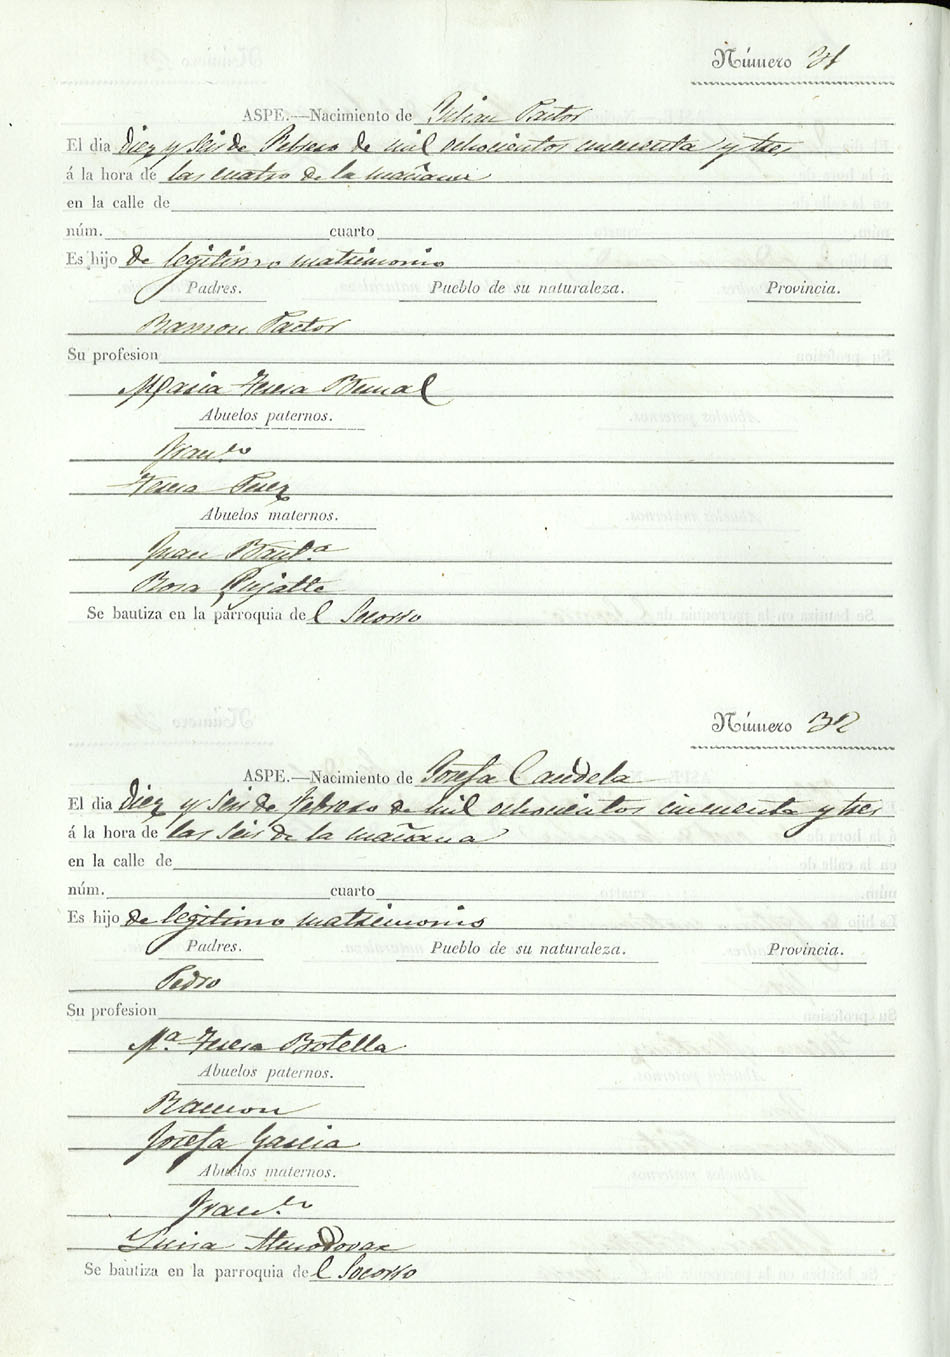 Número 31
ASPE.—Nacimiento de Julian Pastor
El dia diez y seis de Febrero de mil ochocientos cincuenta y tres
á la hora de las cuatro de la mañana
en la calle de
núm. cuarto
Es hijo de legitimo matrimonio
Padres. Pueblo de su naturaleza. Provincia.
Ramon Pastor
Su profesion
Maria Teresa Bernal
Abuelos paternos.
Franco
Teresa Perez
Abuelos maternos.
Juan Bauta
Rosa Pujalte
Se bautiza en la parroquia del Socorro
Número 32
ASPE.—Nacimiento de Josefa Candela
El dia diez y seis de febrero de mil ochocientos cincuenta y tres
á la hora de las seis de la mañana
en la calle de
núm. cuarto
Es hijo de legitimo matrimonio
Padres. Pueblo de su naturaleza. Provincia.
Pedro
Su profesion
Ma Teresa Botella
Abuelos paternos.
Ramon
Josefa Garcia
Abuelos maternos.
Franco
Luisa Almodovar
Se bautiza en la parroquia del Socorro